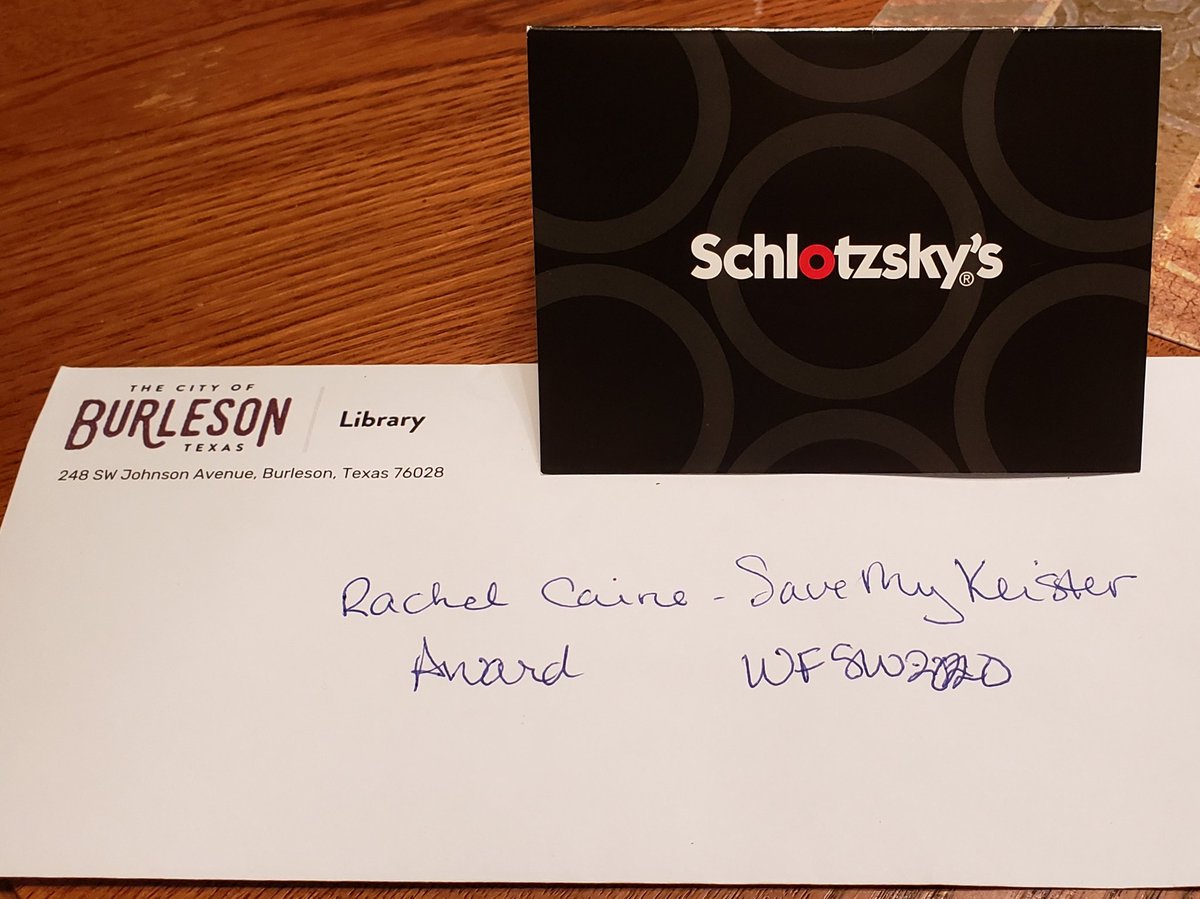 Schlotzsky's®
THE CITY OF
BURLESON
TEXAS
Library
248 SW Johnson Avenue, Burleson, Texas 76028
Rachel Caine - Save My Keister
Award WFSW2020